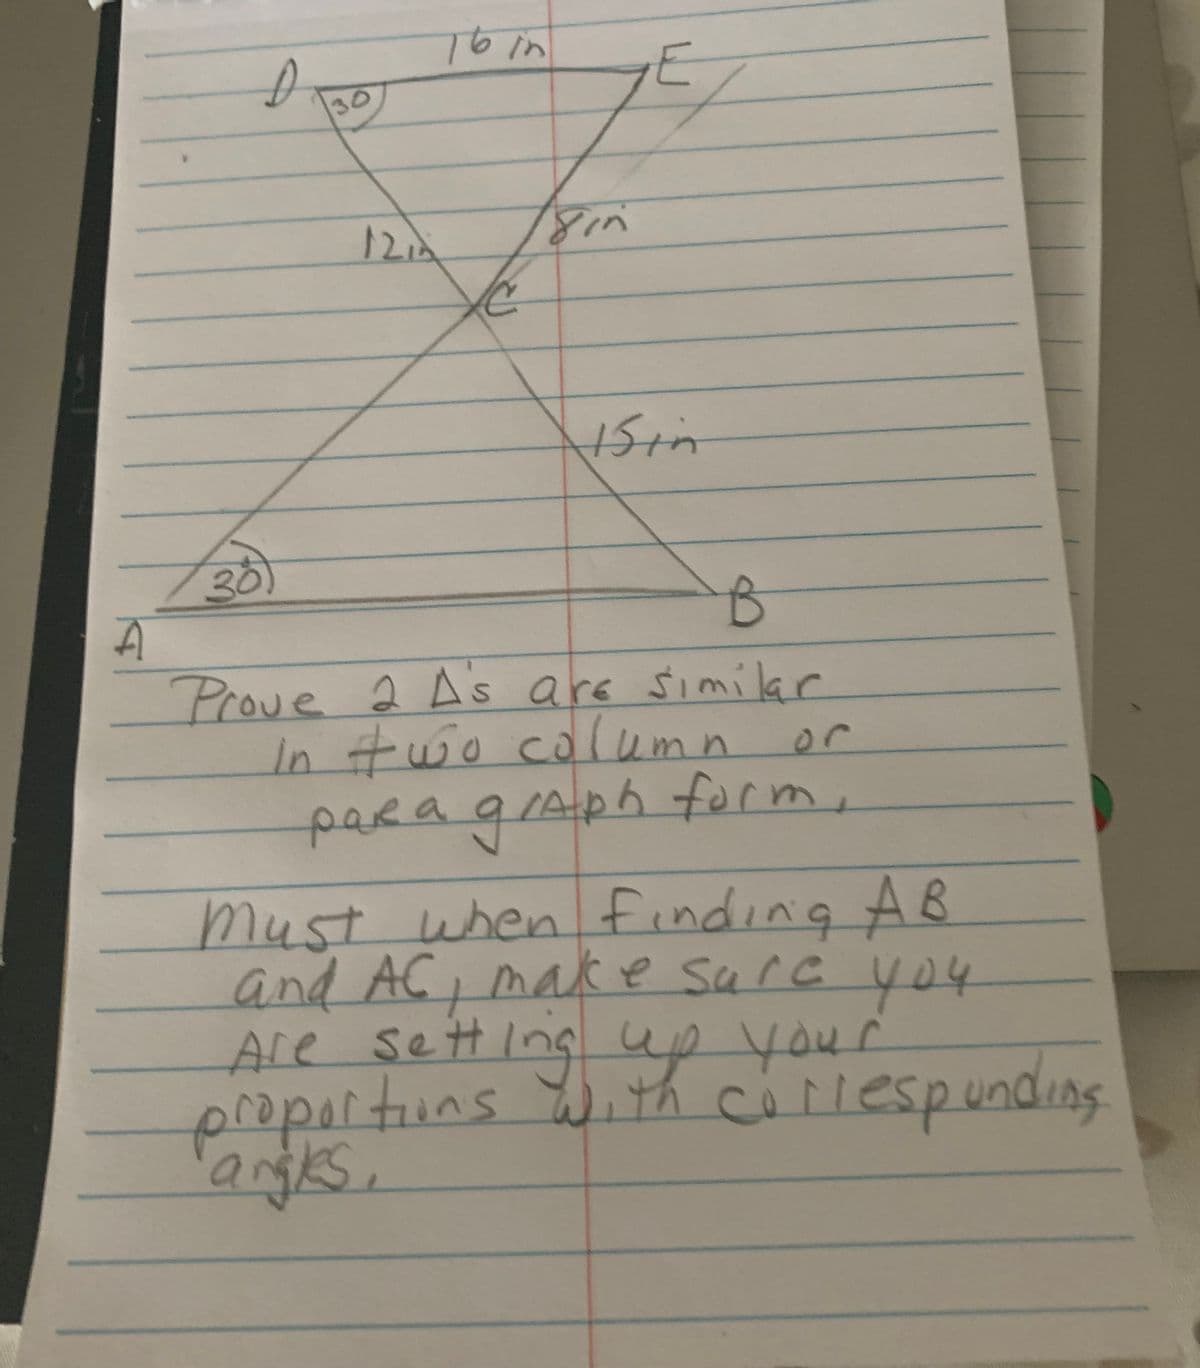 16 in
D 30 E
12in 8in
C
15in
30
A B
Prove 2 Δ's are similar
in two column or
paragraph form.
Must when finding AB
and AC, make sure you
Are setting up your
proportions with corresponding
angles.